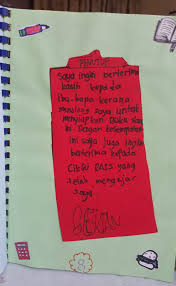 PENUTUP
Saya ingin berterima
kasih kepada
ibu-bapa kerana
menolong saya untuk
menyiapkan Buku skrap
ini. Dengan berkesempatan
ini saya juga ingin
berterima kepada
CIKGU RAIS yang
telah mengajar
saya.
SEKIAN